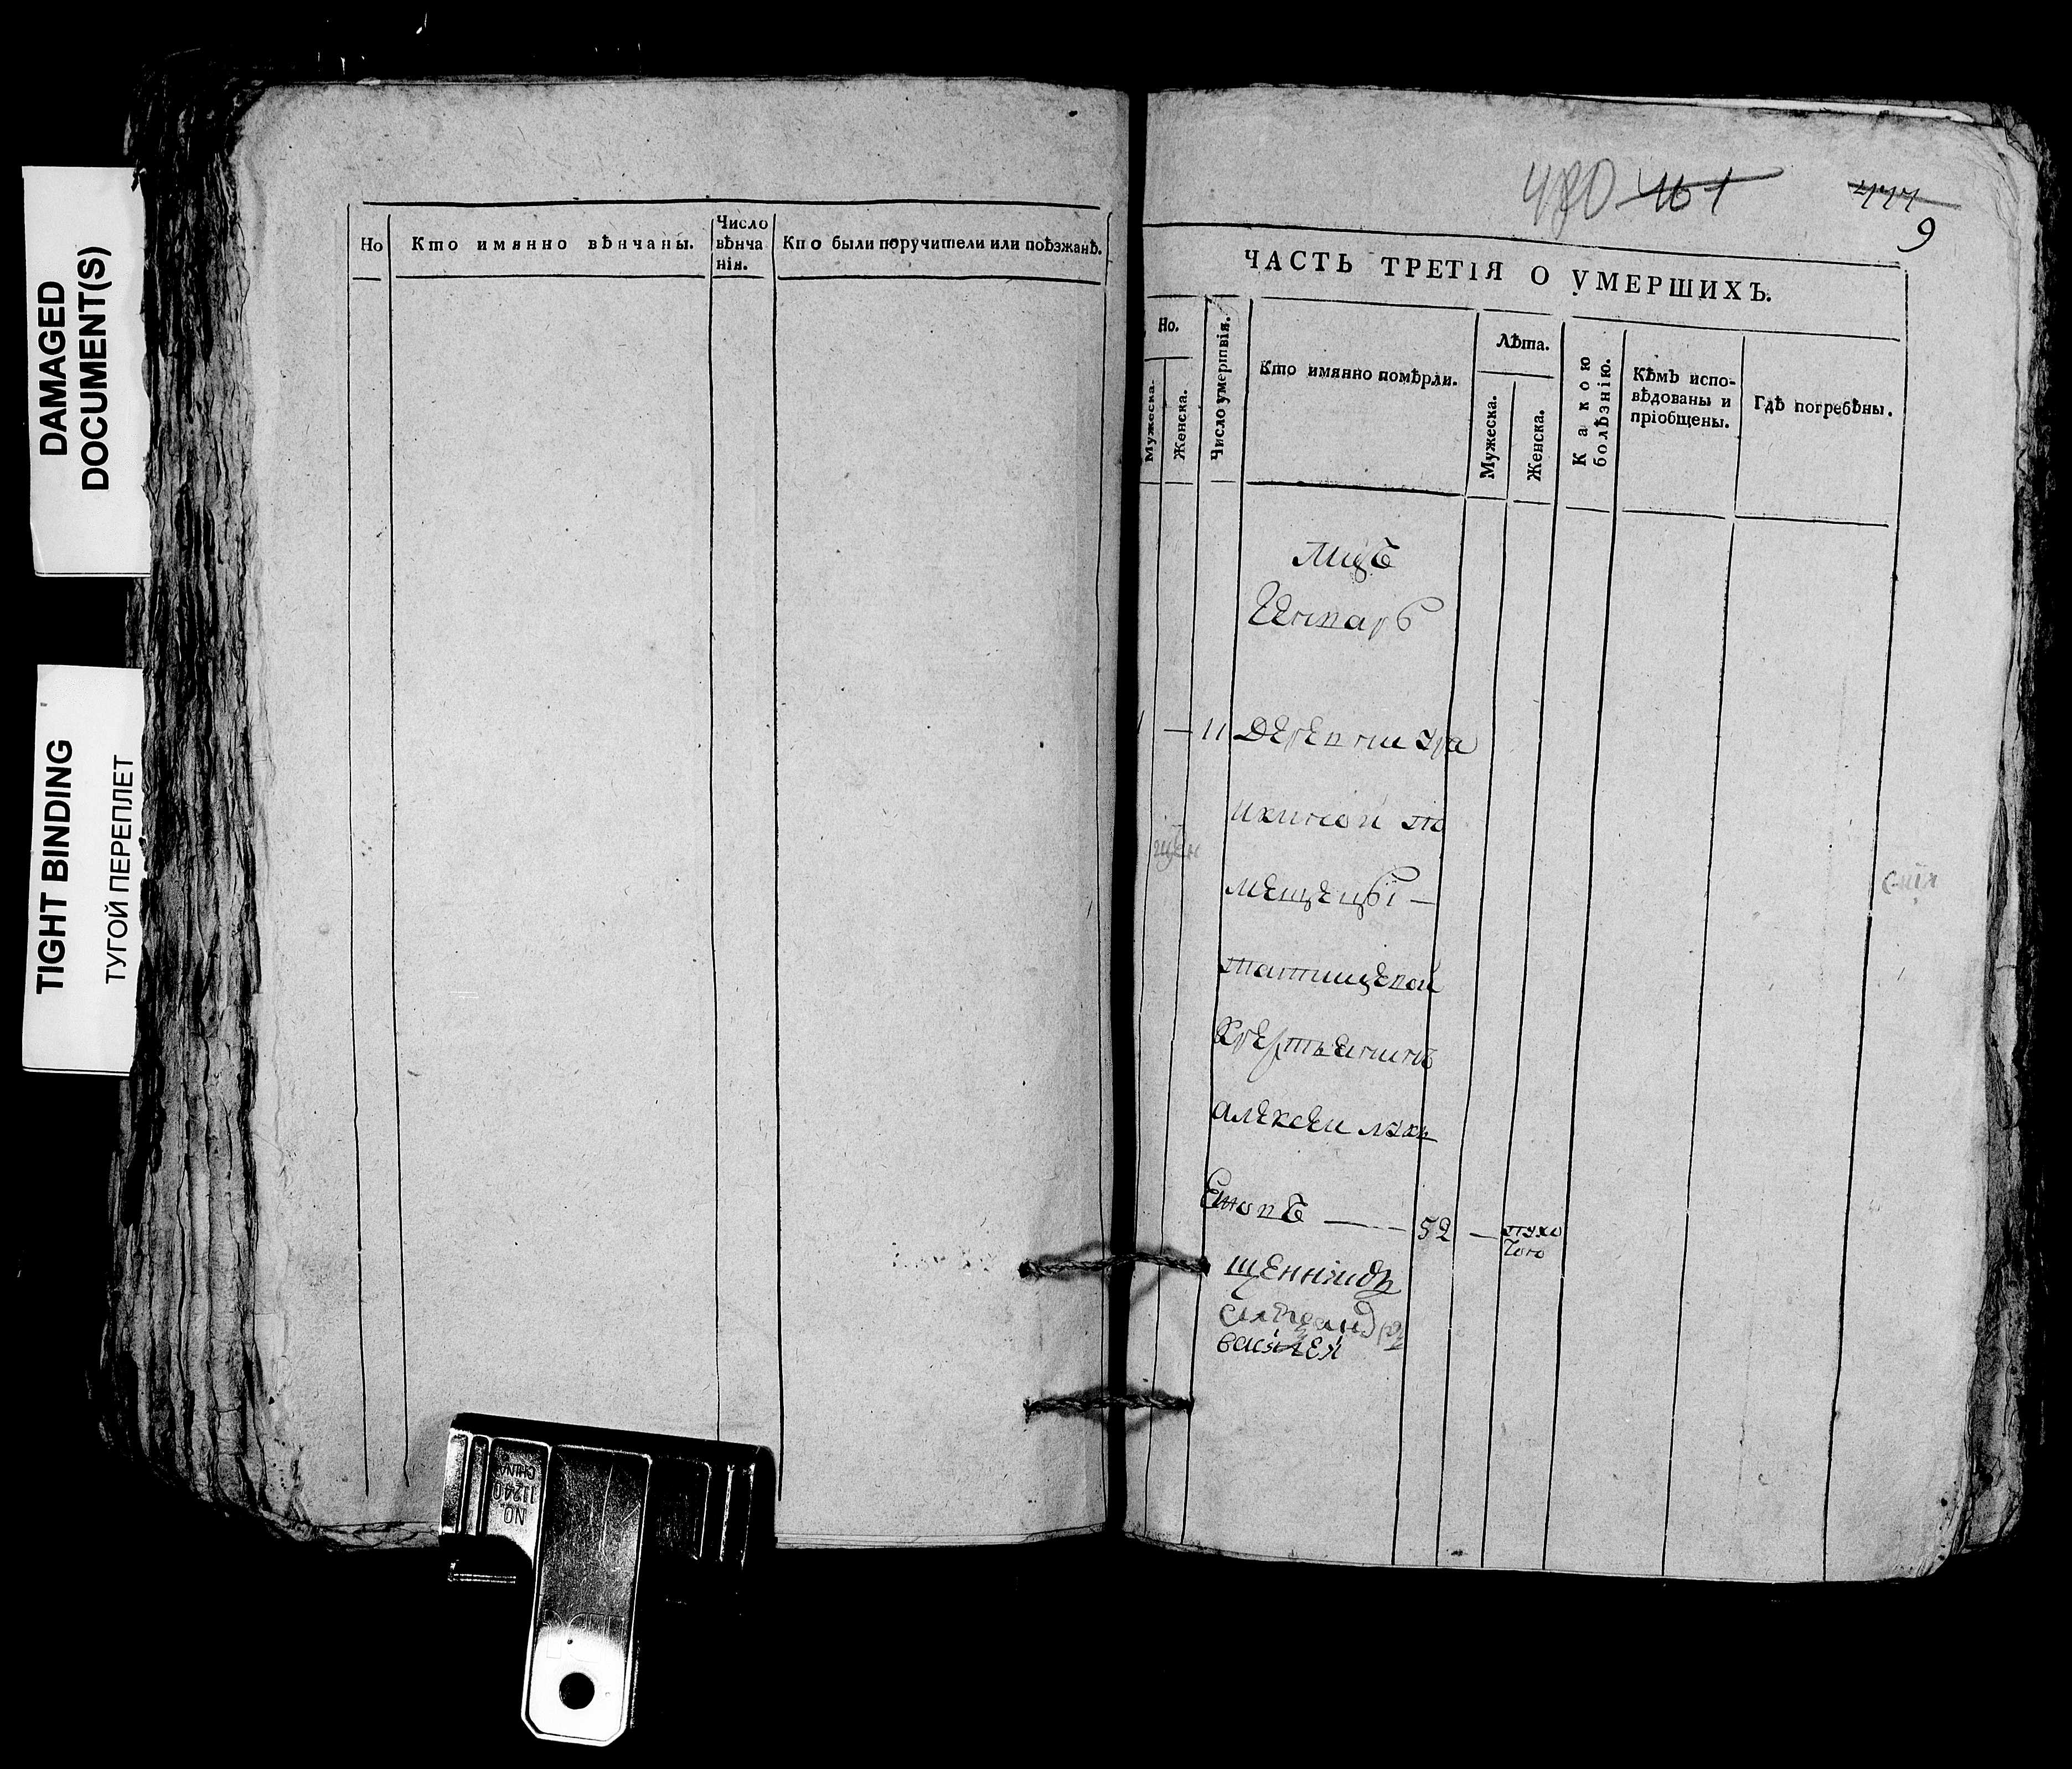 DAMAGED
DOCUMENT(S)
TIGHT BINDING
ТУГОЙ ПЕРЕПЛЕТ
Но
Кто имянно вѣнчаны.
Число
вѣнча
нія.
Кто были поручители или поѣзжанѣ.
480 161
9
ЧАСТЬ ТРЕТІЯ О УМЕРШИХЪ.
Но.
Мужеска.
Женска.
Число умертвія.
Кто имянно помѣрли.
Лѣта.
Мужеска.
Женска.
Какою
болѣзнію.
Кѣмъ испо-
вѣдованы и
пріобщены.
Гдѣ погребѣны.
Генварь
1 — 11 Деревни
по
мещецы —
татищевои
Крестьенинъ
алексеи лукь
еновъ — 52 —
щен
щеннїидъ
васїлей
NO.
11240
CHINA